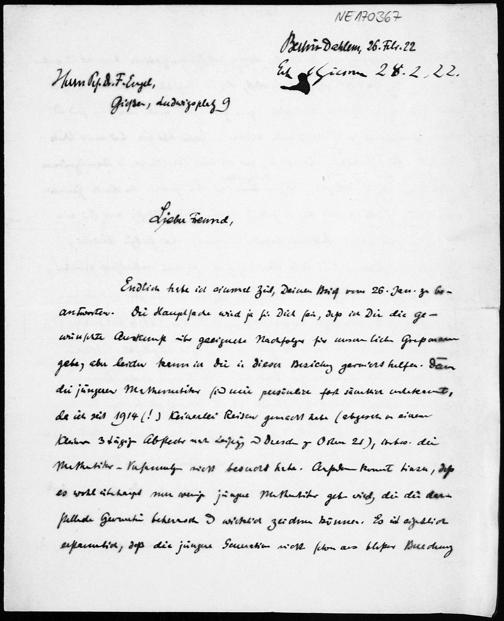 NE170367
Berlin-Dahlem, 26. Febr. 22
Erh. Giessen 28.2.22.
Herrn Prof. Dr. F. Engel,
Gießen, Ludwigsplatz 9
Lieber Freund,
Endlich habe ich einmal Zeit, Deinen Brief vom 26. Jan. zu be-
antworten. Die Hauptsache wird ja für Dich sein, daß ich Dir die ge-
wünschte Auskunft über geeignete Nachfolger für unseren lieben Graßmann
gebe, aber leider kann ich Dir in dieser Beziehung garnicht helfen. Denn
die jüngeren Mathematiker sind mir persönlich fast sämtlich unbekannt,
da ich seit 1914 (!) keinerlei Reisen gemacht habe (abgesehen von einem
kleinen 3 tägigen Abstecher nach Leipzig u Dresden zu Ostern 21), insbes. die
Mathematiker-Versammlungen nicht besucht habe. Außerdem kommt hinzu, daß
es wohl überhaupt nur wenig jüngere Mathematiker geben wird, die die dar-
stellende Geometrie beherrschen u wirklich zeichnen können. Es ist eigentlich
erstaunlich, daß die jüngere Generation nicht schon aus bloßer Berechnung